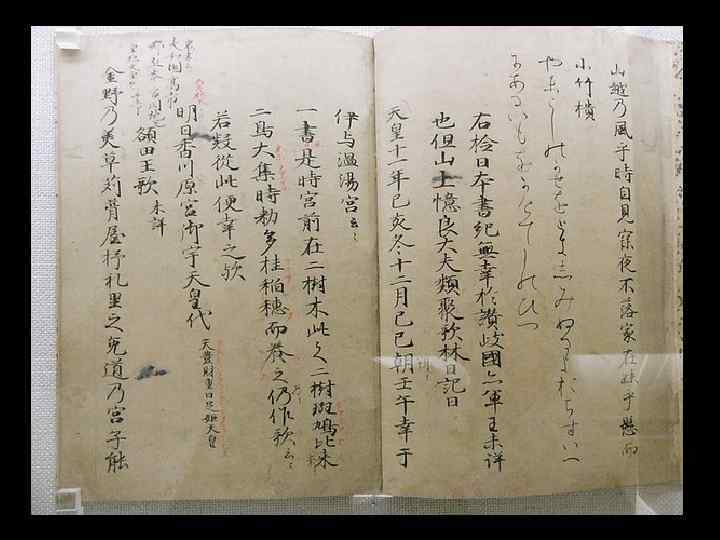 山越乃風乎時自見寐夜不落家在妹乎懸而
小竹櫃
やまこしのかせをときしみぬるよおちすいへ
にあるいもをかけてしのひつ
右捡日本書紀無幸於讃岐國亦軍王未詳
也但山上憶良大夫類聚歌林曰記曰
天皇十一年己亥冬十二月己巳朔壬午幸于
伊与温湯宮云々
一書是時宮前在二樹木此之二樹斑鳩比米
二鳥大集時勅多挂稲穂而養之仍作歌云々
若疑從此便幸之歟
明日香川原宮御宇天皇代 天豊財重日足姫天皇
額田王歌 未詳
金野乃美草苅葺屋杼礼里之兎道乃宮子能